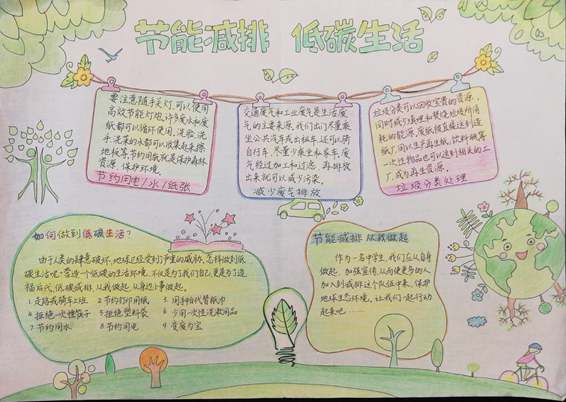 节能减排 低碳生活
要注意随手关灯,可以使用
高效节能灯泡,许多废水和废
纸都可以循环使用,洗脸、洗
手、洗菜的水都可以收集起来擦
地板等,节约用纸就是保护森林
资源、保护环境。
节约用电/水/纸张
交通废气和工业废气是生活废
气的主要来源,我们出门尽量乘
坐公共汽车或出租车,还可以骑
自行车,尽量少乘坐私家车,废
气经过加工和过滤,再排放
出来就可以减少污染。
减少废气排放
垃圾分类可以回收宝贵的资源,
同时减少填埋和焚烧垃圾所消
耗的能源,废纸被直接送到造纸
厂,用以生产再生纸,饮料瓶等
一次性物品也可以送到相关的工
厂,成为再生资源。
垃圾分类处理
如何做到低碳生活?
由于人类的肆意破坏,地球已经受到了严重的威胁,怎样做到低
碳生活呢?营造一个低碳的生活环境,不仅是为了我们自己,更是为了造
福后代,低碳减排,从我做起,从身边小事做起。
1 走路或骑车上班 2 节约打印用纸 3 用手帕代替纸巾
4 拒绝一次性筷子 5 拒绝塑料袋 6 少用一次性洗漱用品
7 节约用水 8 节约用电 9 变废为宝
节能减排 从我做起
作为一名中学生,我们应从自身
做起,加强宣传,从而使更多的人
加入到减排这个队伍中来,保护
地球生态环境,让我们一起行动
起来吧……